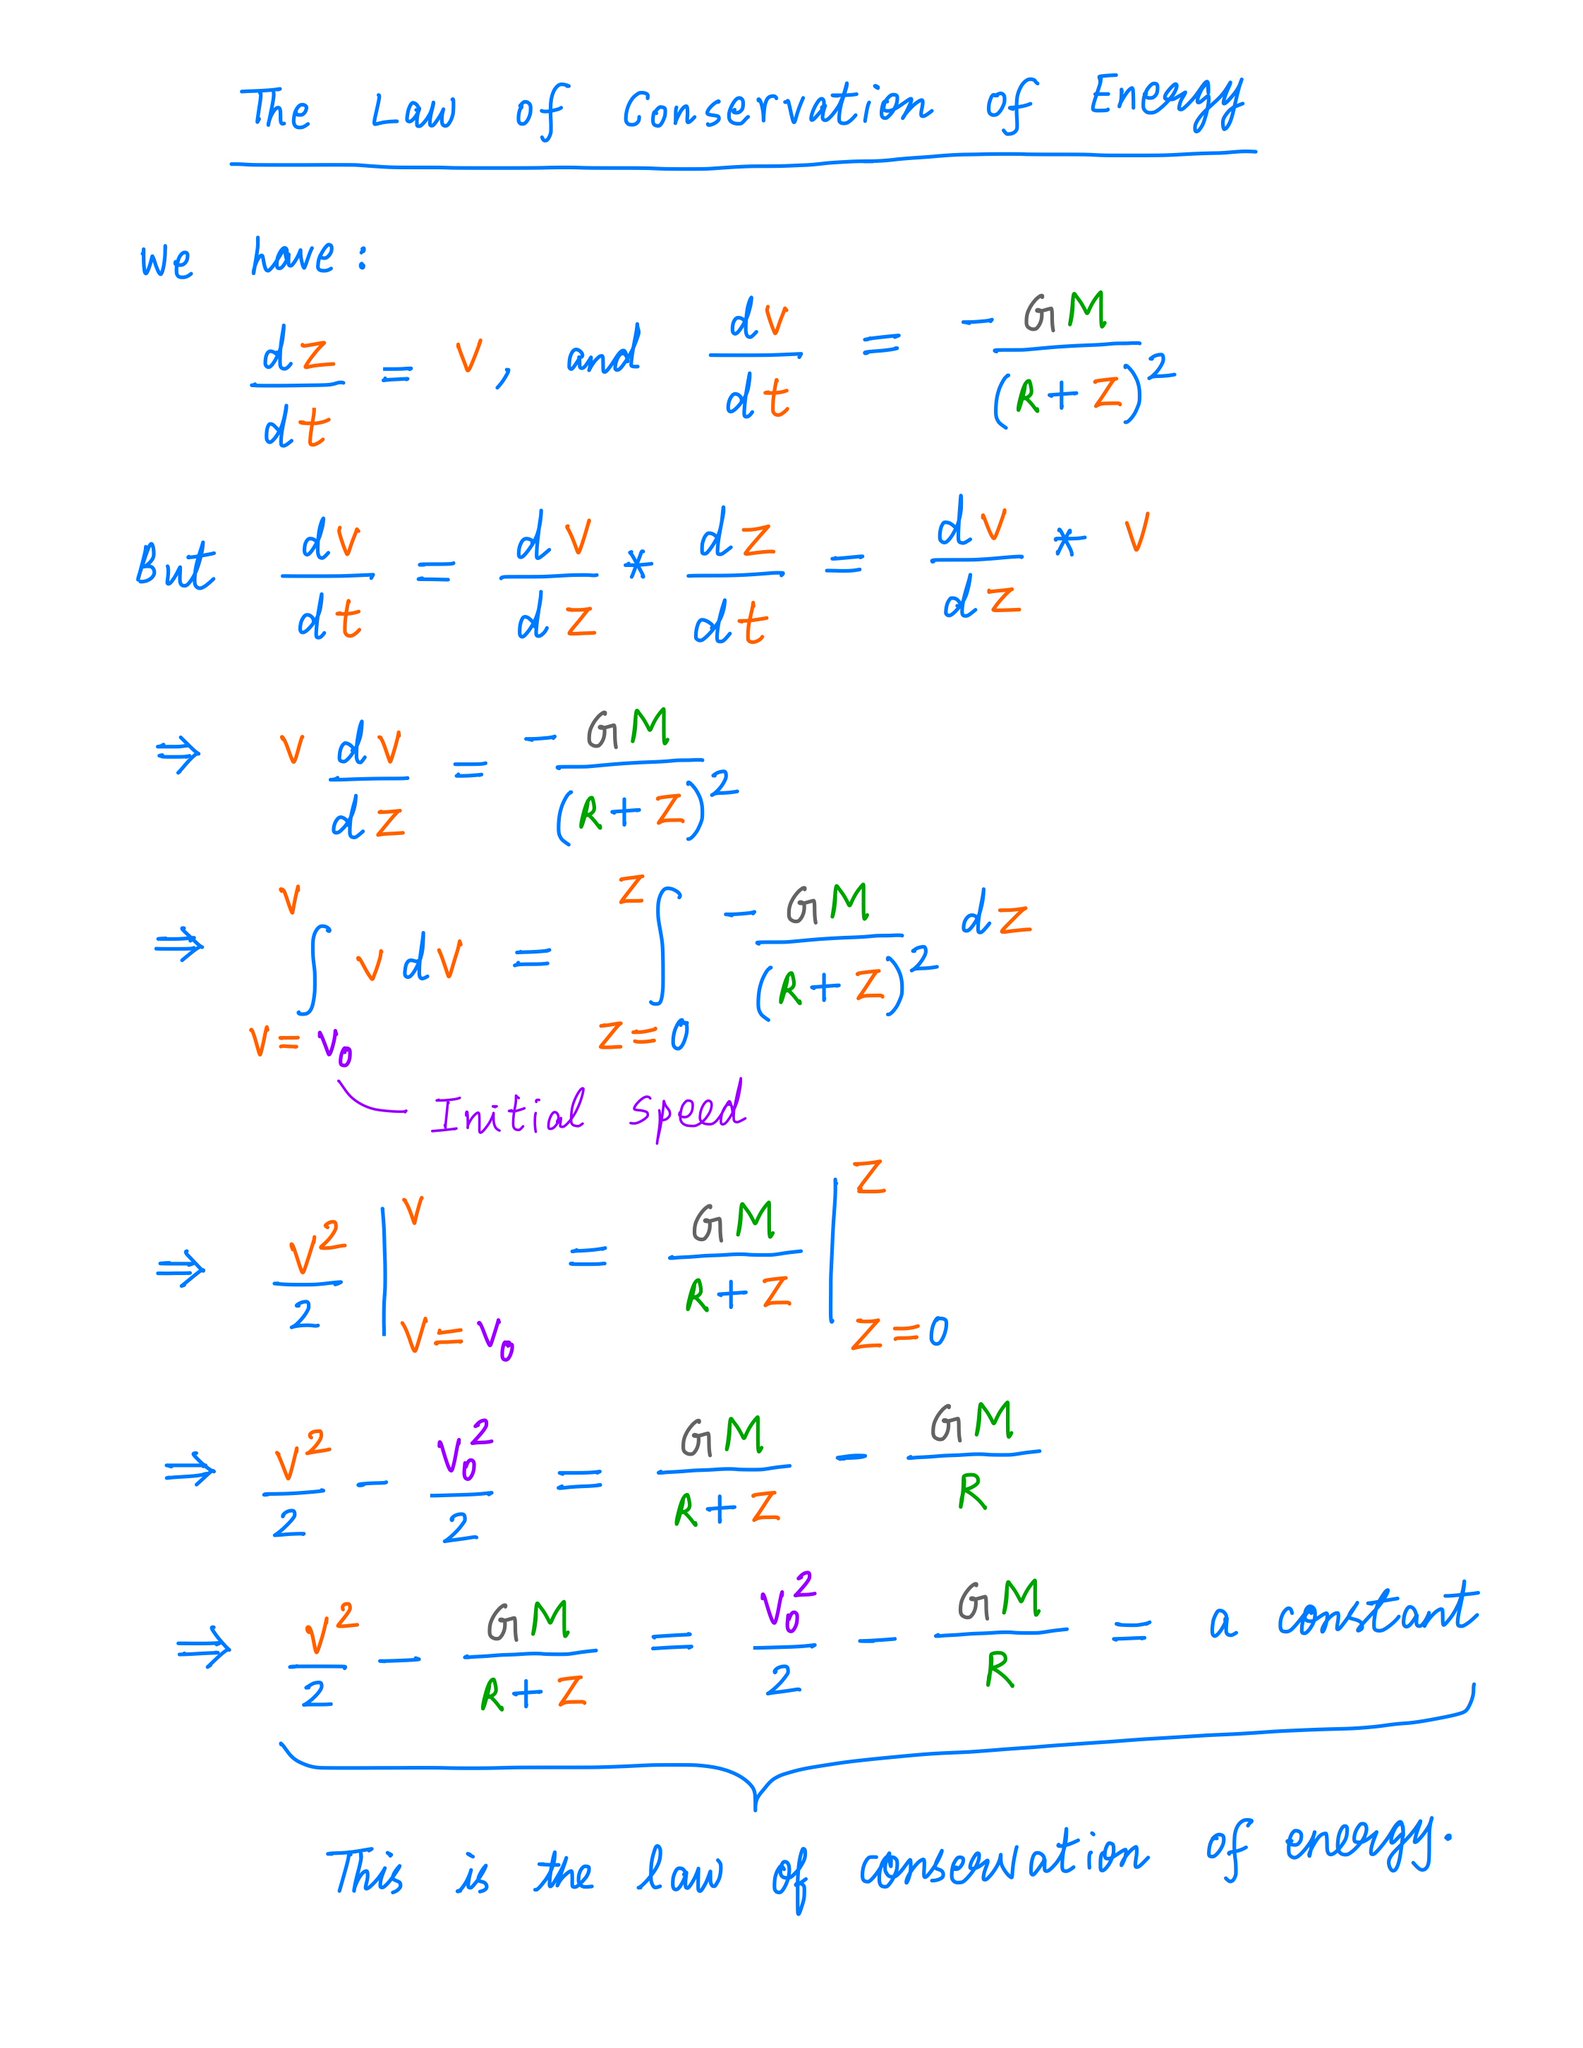 The Law of Conservation of Energy
We have:
dz/dt = v, and dv/dt = -GM/(R+z)²
But dv/dt = dv/dz * dz/dt = dv/dz * v
⇒ v dv/dz = -GM/(R+z)²
⇒ ∫_{v=v₀}^{v} v dv = ∫_{z=0}^{z} -GM/(R+z)² dz
Initial speed
⇒ v²/2 |_{v=v₀}^{v} = GM/(R+z) |_{z=0}^{z}
⇒ v²/2 - v₀²/2 = GM/(R+z) - GM/R
⇒ v²/2 - GM/(R+z) = v₀²/2 - GM/R = a constant
This is the law of conservation of energy.